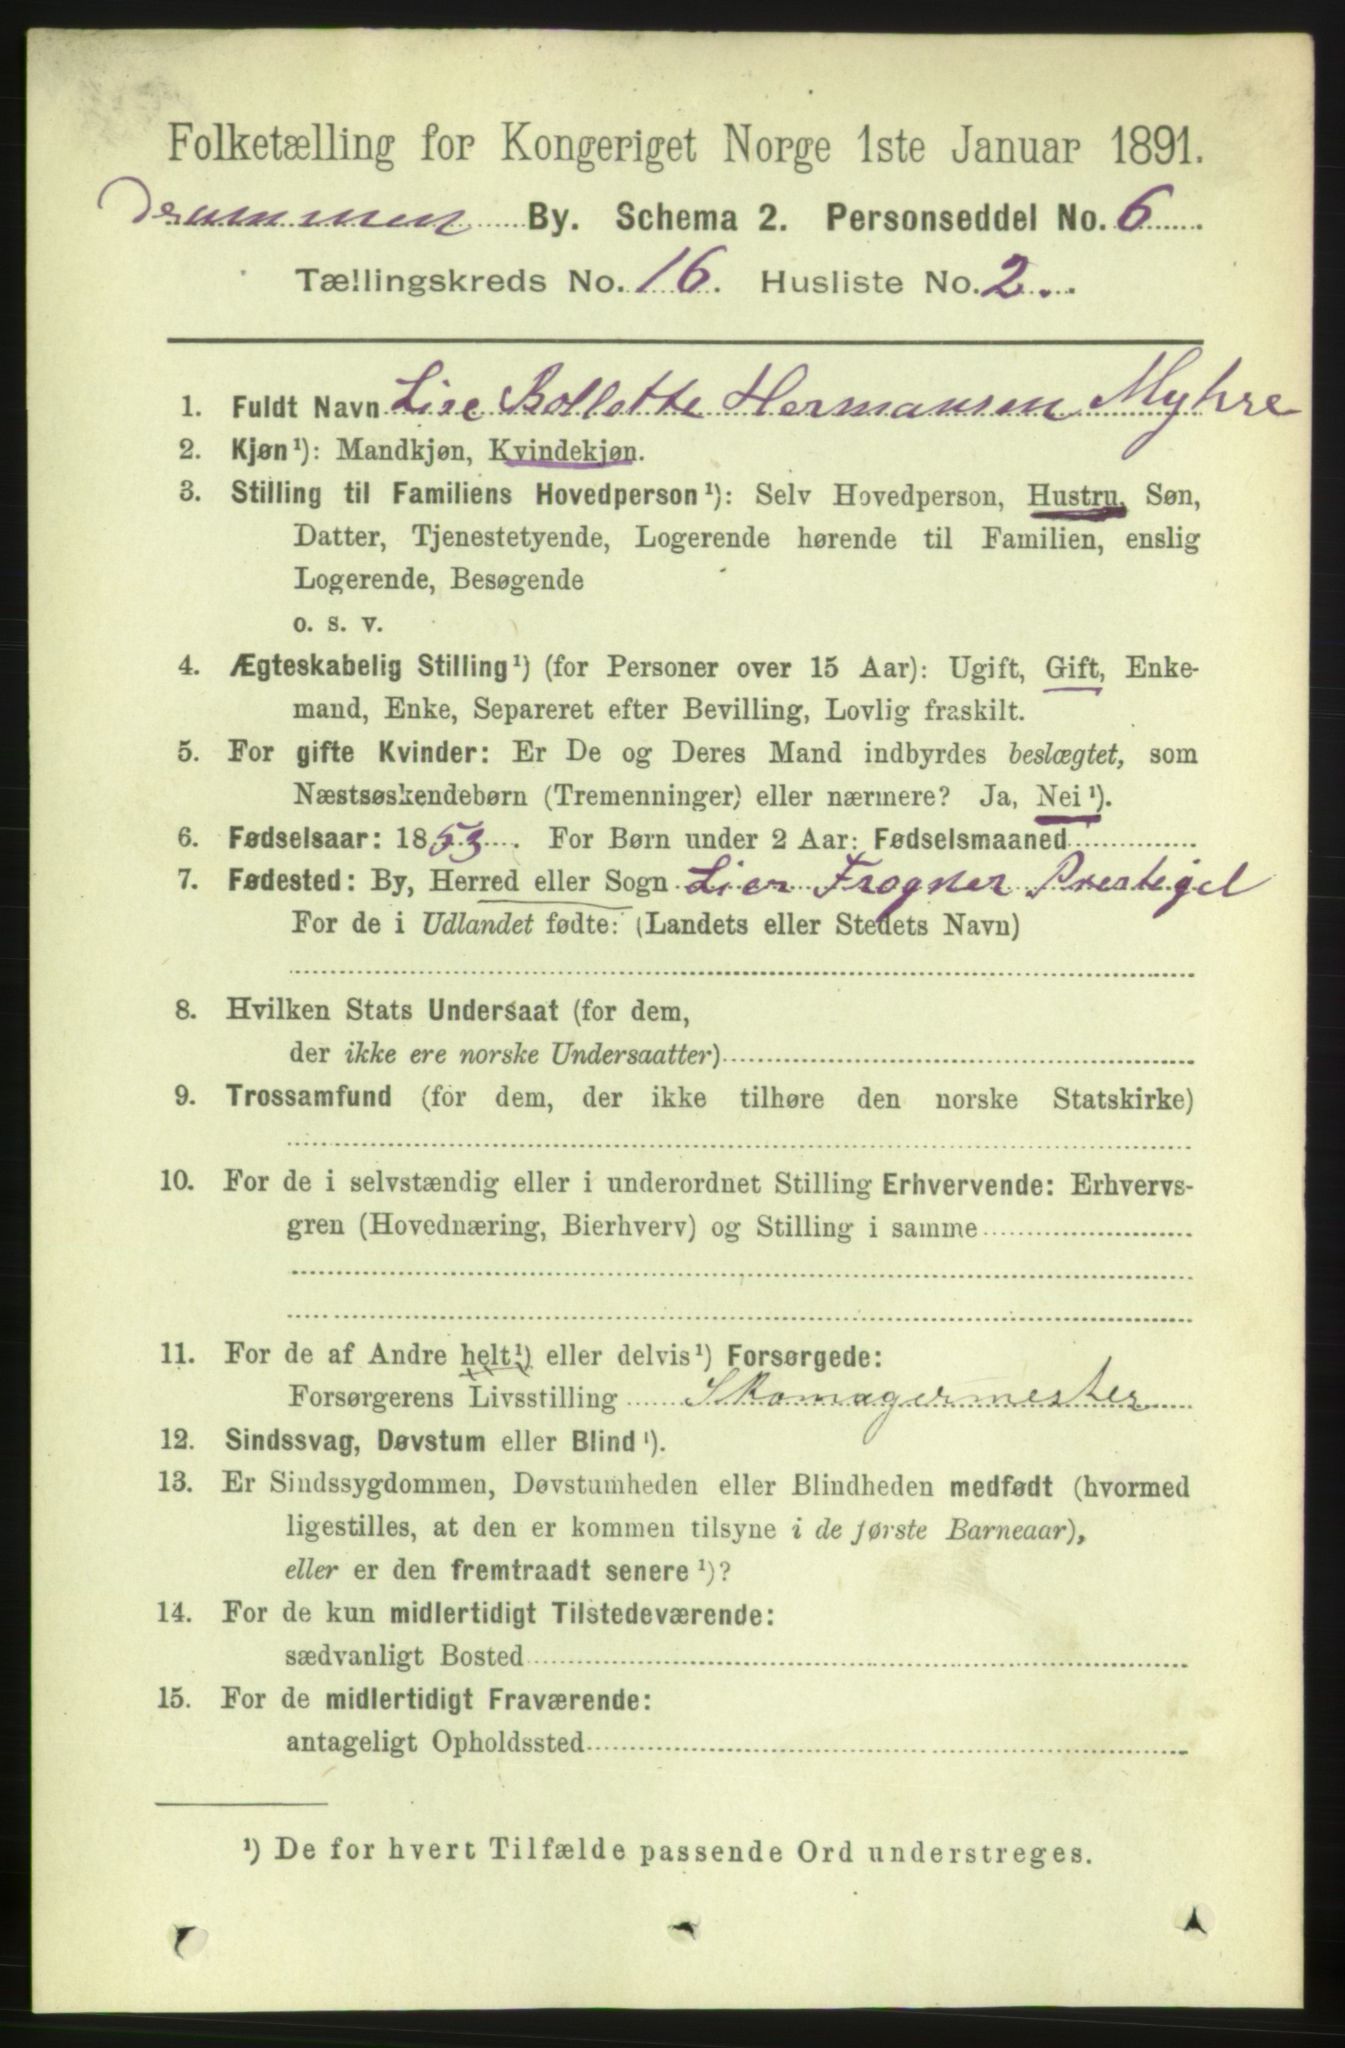 Folketælling for Kongeriget Norge 1ste Januar 1891.
Drammen By. Schema 2. Personseddel No. 6
Tællingskreds No. 16. Husliste No. 2.
1. Fuldt Navn Lise Bollette Hermansen Myhre
2. Kjøn¹): Mandkjøn, Kvindekjøn.
3. Stilling til Familiens Hovedperson¹): Selv Hovedperson, Hustru, Søn,
Datter, Tjenestetyende, Logerende hørende til Familien, enslig
Logerende, Besøgende
o. s. v.
4. Ægteskabelig Stilling¹) (for Personer over 15 Aar): Ugift, Gift, Enke-
mand, Enke, Separeret efter Bevilling, Lovlig fraskilt.
5. For gifte Kvinder: Er De og Deres Mand indbyrdes beslægtet, som
Næstsøskendebørn (Tremenninger) eller nærmere? Ja, Nei¹).
6. Fødselsaar: 1853. For Børn under 2 Aar: Fødselsmaaned
7. Fødested: By, Herred eller Sogn Lier Frogner Prestegjel
For de i Udlandet fødte: (Landets eller Stedets Navn)
8. Hvilken Stats Undersaat (for dem,
der ikke ere norske Undersaatter)
9. Trossamfund (for dem, der ikke tilhøre den norske Statskirke)
10. For de i selvstændig eller i underordnet Stilling Erhvervende: Erhvervs-
gren (Hovednæring, Bierhverv) og Stilling i samme
11. For de af Andre helt¹) eller delvis¹) Forsørgede:
Forsørgerens Livsstilling Skomagermester
12. Sindssvag, Døvstum eller Blind¹).
13. Er Sindssygdommen, Døvstumheden eller Blindheden medfødt (hvormed
ligestilles, at den er kommen tilsyne i de første Barneaar),
eller er den fremtraadt senere¹)?
14. For de kun midlertidigt Tilstedeværende:
sædvanligt Bosted
15. For de midlertidigt Fraværende:
antageligt Opholdssted
¹) De for hvert Tilfælde passende Ord understreges.